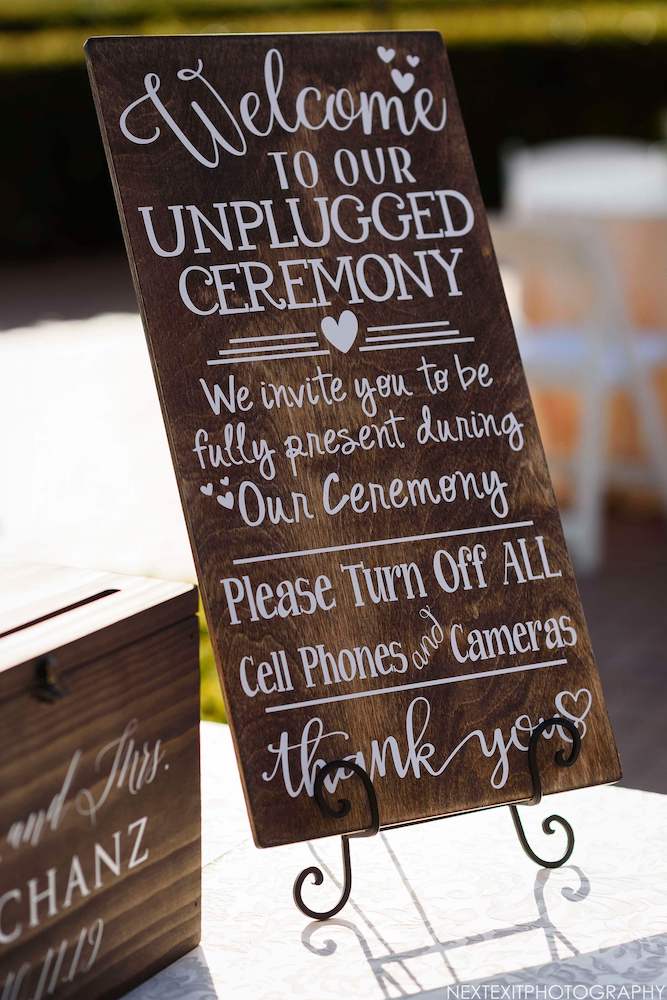 Welcome
TO OUR
UNPLUGGED
CEREMONY
We invite you to be
fully present during
Our Ceremony
Please Turn Off ALL
Cell Phones and Cameras
thank you
and Mrs.
CHANZ
.11.19
NEXTEXITPHOTOGRAPHY